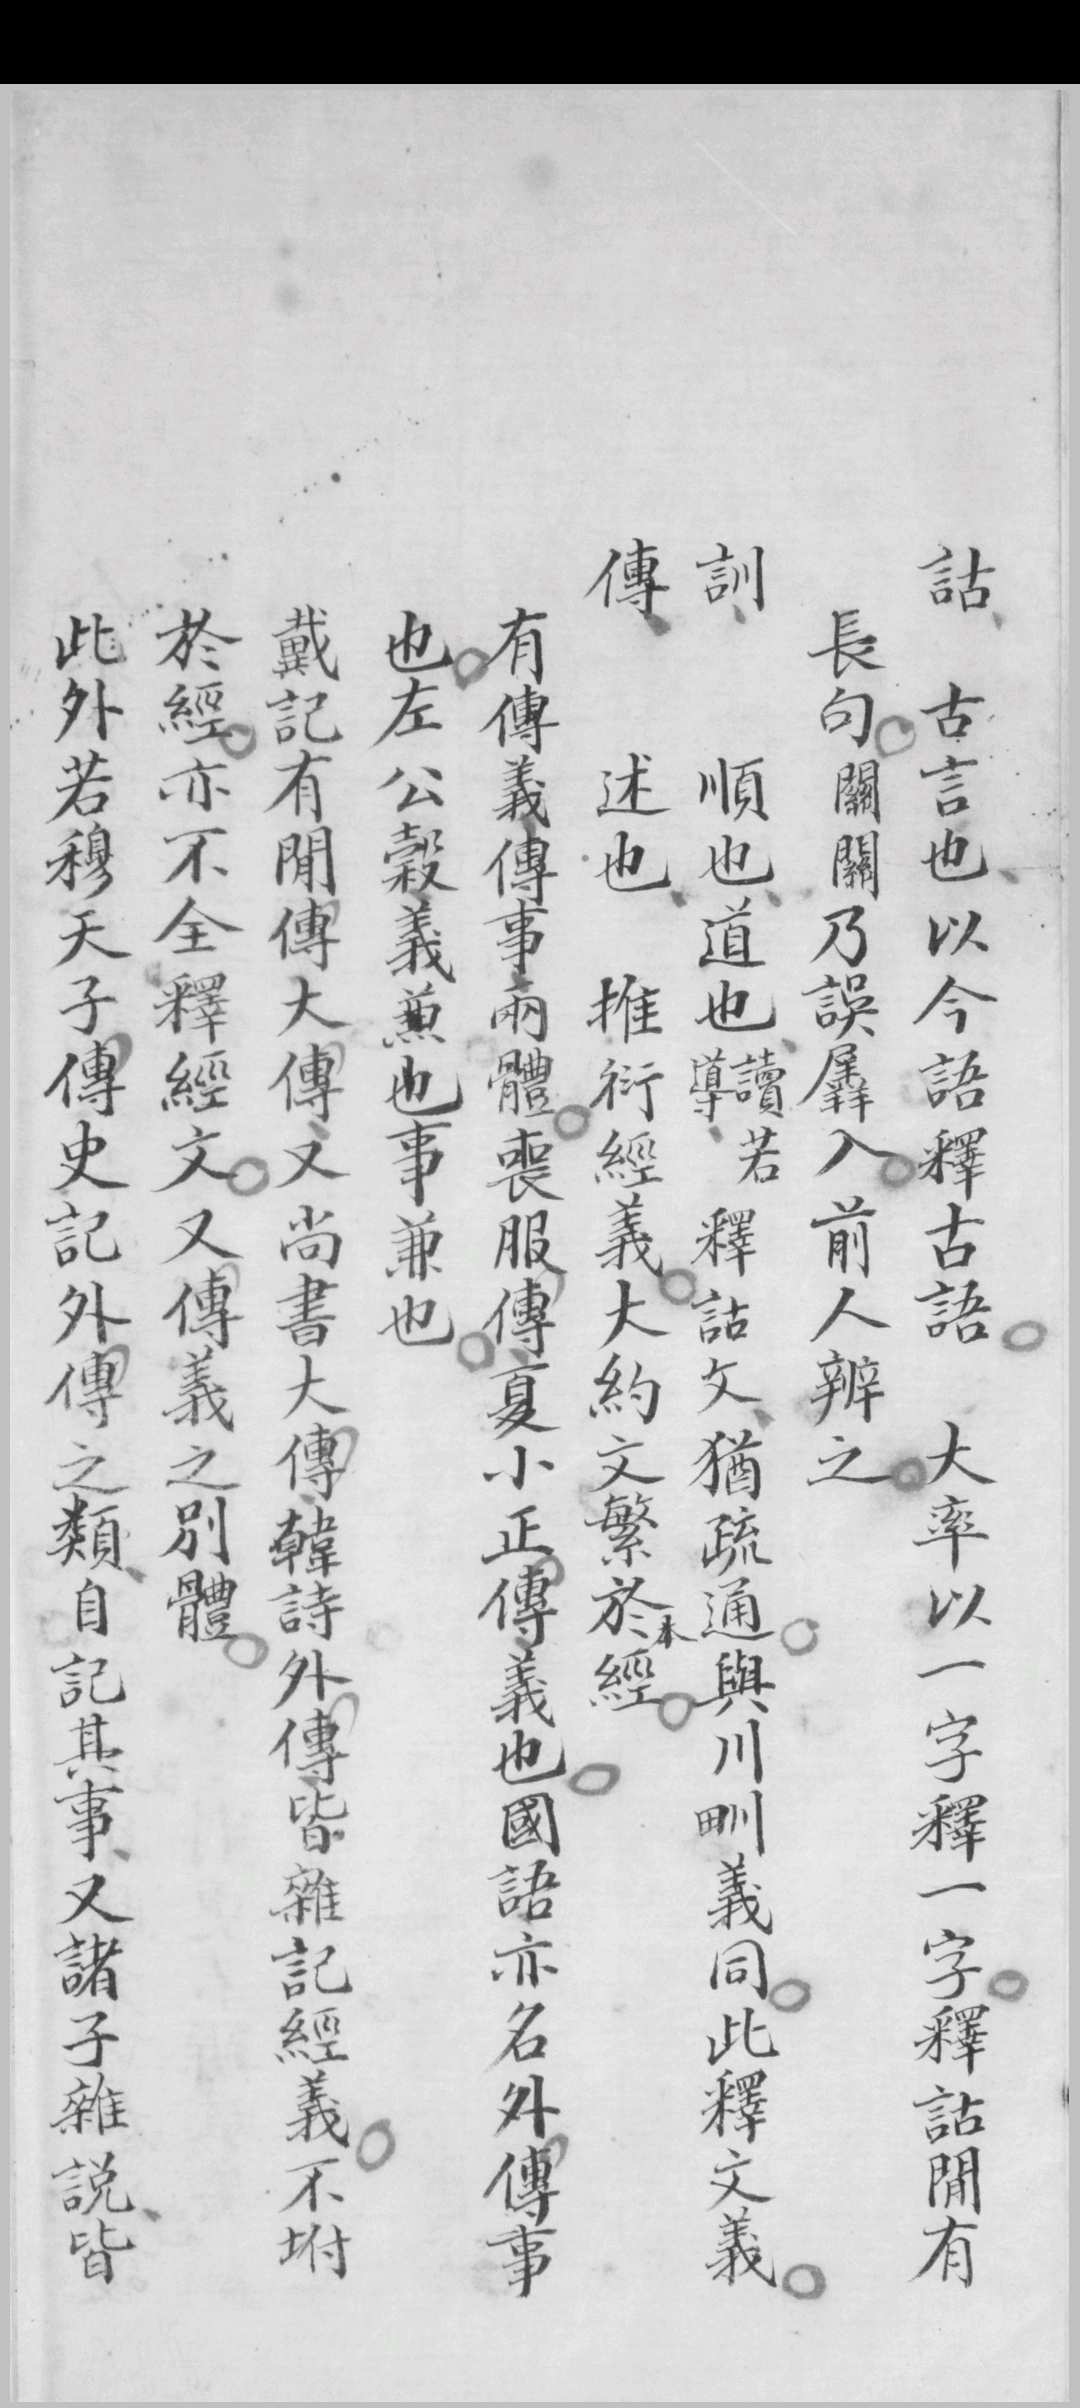 詁　古言也以今語釋古語　大率以一字釋一字釋詁閒有
長句關關乃誤羼入前人辨之
訓　順也道也讀若導釋詁文猶疏通與川甽義同此釋文義
傳　述也　推衍經義大約文繁於本經
有傳義傳事兩體喪服傳夏小正傳義也國語亦名外傳事
也左公穀義兼也事兼也
戴記有閒傳大傳又尚書大傳韓詩外傳皆雜記經義不坿
於經亦不全釋經文又傳義之別體
此外若穆天子傳史記外傳之類自記其事又諸子雜說皆